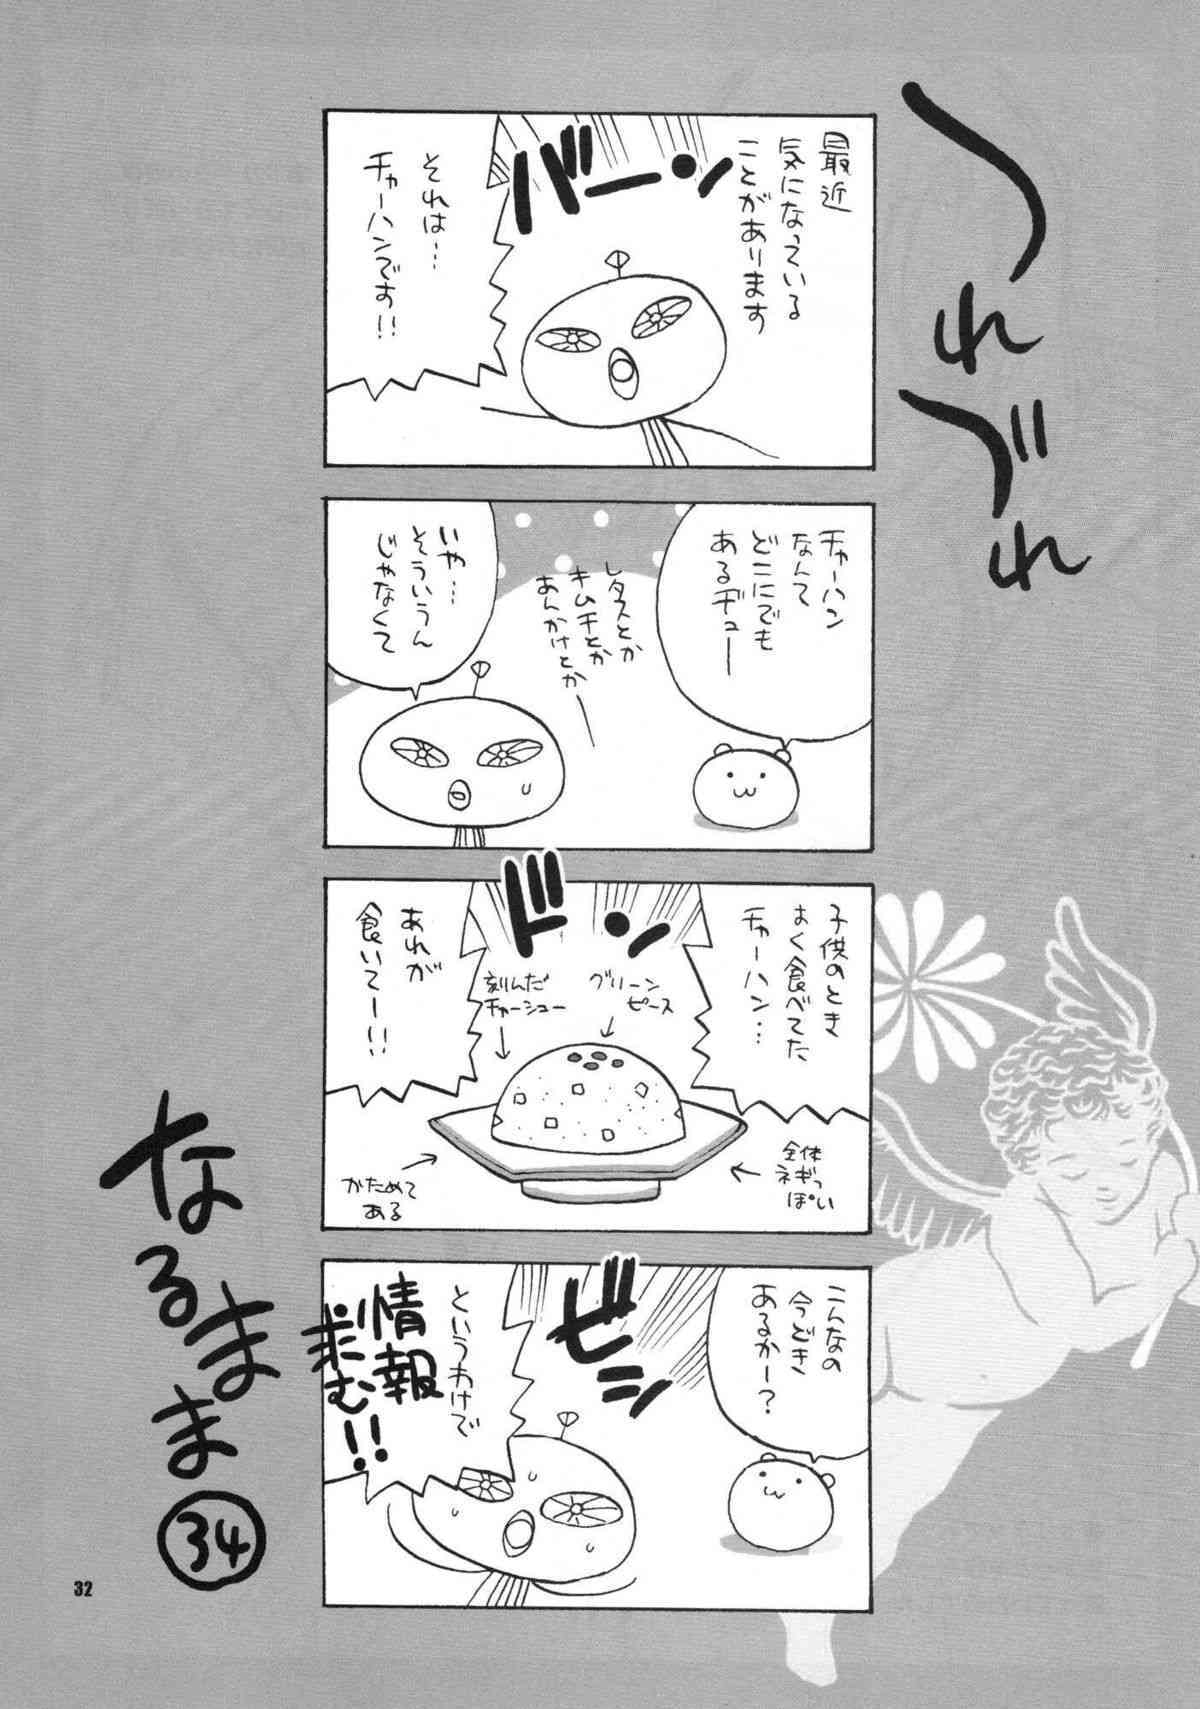 つれづれ
なるまま
34
最近
気になっている
ことがあります
バーン
それは…
チャーハンです!!
チャーハン
なんて
どこにでも
あるヂュー
レタスとか
キムチとか
あんかけとかー
いや…
そういうん
じゃなくて
子供のとき
よく食べてた
チャーハン…
ドン
グリーン
ピース
刻んだ
チャーシュー
全体
ネギっ
ぽい
かためて
ある
あれが
食いてー!!
こんなの
今どき
あるかー?
ビシ
というわけで
情報
求む!!
32